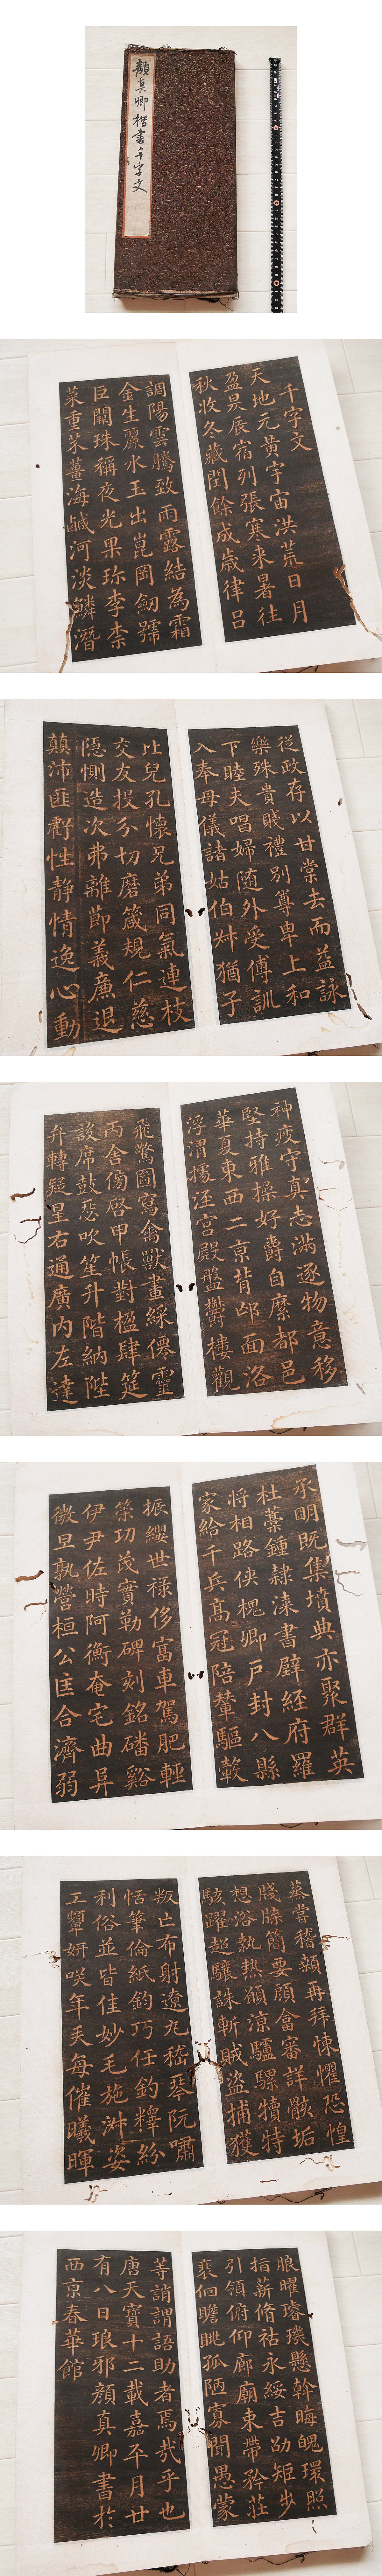 顏真卿楷書千字文
千字文
天地元黃宇宙洪荒日月
盈昃辰宿列張寒来暑往
秋收冬藏閏餘成歲律呂
調陽雲騰致雨露結為霜
金生麗水玉出崑岡劒號
巨闕珠稱夜光果珎李柰
菜重芥薑海鹹河淡鱗潛
從政存以甘棠去而益詠
樂殊貴賤禮別尊卑上和
下睦夫唱婦随外受傅訓
入奉母儀諸姑伯叔猶子
比兒孔懷兄弟同氣連枝
交友投分切磨箴規仁慈
隱惻造次弗離節義廉退
顛沛匪虧性靜情逸心動
神疲守真志滿逐物意移
堅持雅操好爵自縻都邑
華夏東西二京背邙面洛
浮渭據涇宮殿盤鬱樓觀
飛驚圖寫禽獸畫綵僊靈
丙舍傍啓甲帳對楹肆筵
設席鼓瑟吹笙升階納陛
弁轉疑星右通廣內左達
承明既集墳典亦聚群英
杜藁鍾隸漆書壁經府羅
將相路俠槐卿戶封八縣
家給千兵高冠陪輦驅轂
振纓世祿侈富車駕肥輕
策功茂實勒碑刻銘磻谿
伊尹佐時阿衡奄宅曲阜
微旦孰營桓公匡合濟弱
蒸嘗稽顙再拜悚懼恐惶
牋牒簡要顧答審詳骸垢
想浴執熱願凉驢騾犢特
駭躍超驤誅斬賊盜捕獲
叛亡布射遼丸嵇琴阮嘯
恬筆倫紙鈞巧任釣釋紛
利俗並皆佳妙毛施淑姿
工顰妍咲年矢每催曦暉
朗曜璿璣懸斡晦魄環照
指薪脩祜永綏吉劭矩步
引領俯仰廊廟束帶矜莊
裵佪瞻眺孤陋寡聞愚蒙
等誚謂語助者焉哉乎也
唐天寶十二載嘉平月廿
有八日琅邪顏真卿書於
西京春華館